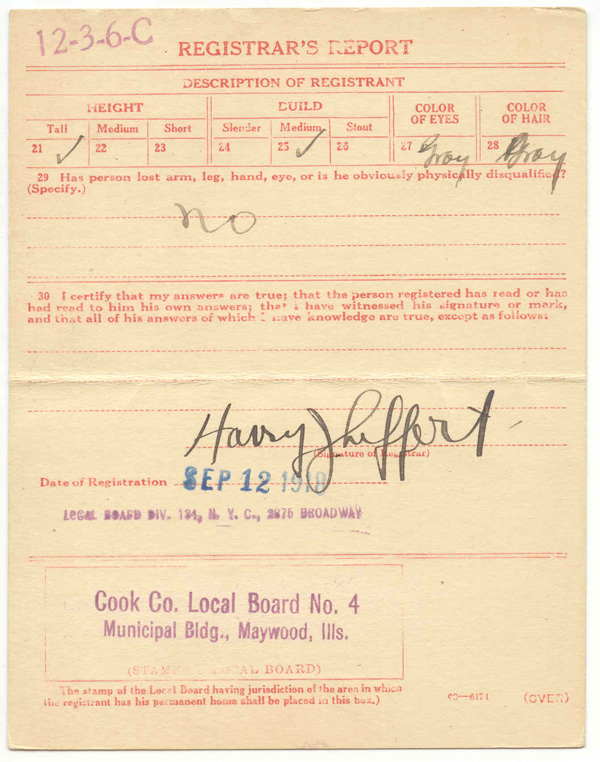 12-3-6-C
REGISTRAR'S REPORT
DESCRIPTION OF REGISTRANT
HEIGHT BUILD COLOR OF EYES COLOR OF HAIR
Tall Medium Short Slender Medium Stout
21 ✓ 22 23 24 25 ✓ 26 27 Gray 28 Gray
29 Has person lost arm, leg, hand, eye, or is he obviously physically disqualified?
(Specify.)
no
30 I certify that my answers are true; that the person registered has read or has
had read to him his own answers; that I have witnessed his signature or mark,
and that all of his answers of which I have knowledge are true, except as follows:
Harry
(Signature of Registrar)
Date of Registration SEP 12 1918
LOCAL BOARD DIV. 134, N. Y. C., 2875 BROADWAY
Cook Co. Local Board No. 4
Municipal Bldg., Maywood, Ills.
(STAMP OF LOCAL BOARD)
(The stamp of the Local Board having jurisdiction of the area in which
the registrant has his permanent home shall be placed in this box.)
03—6171 (OVER)